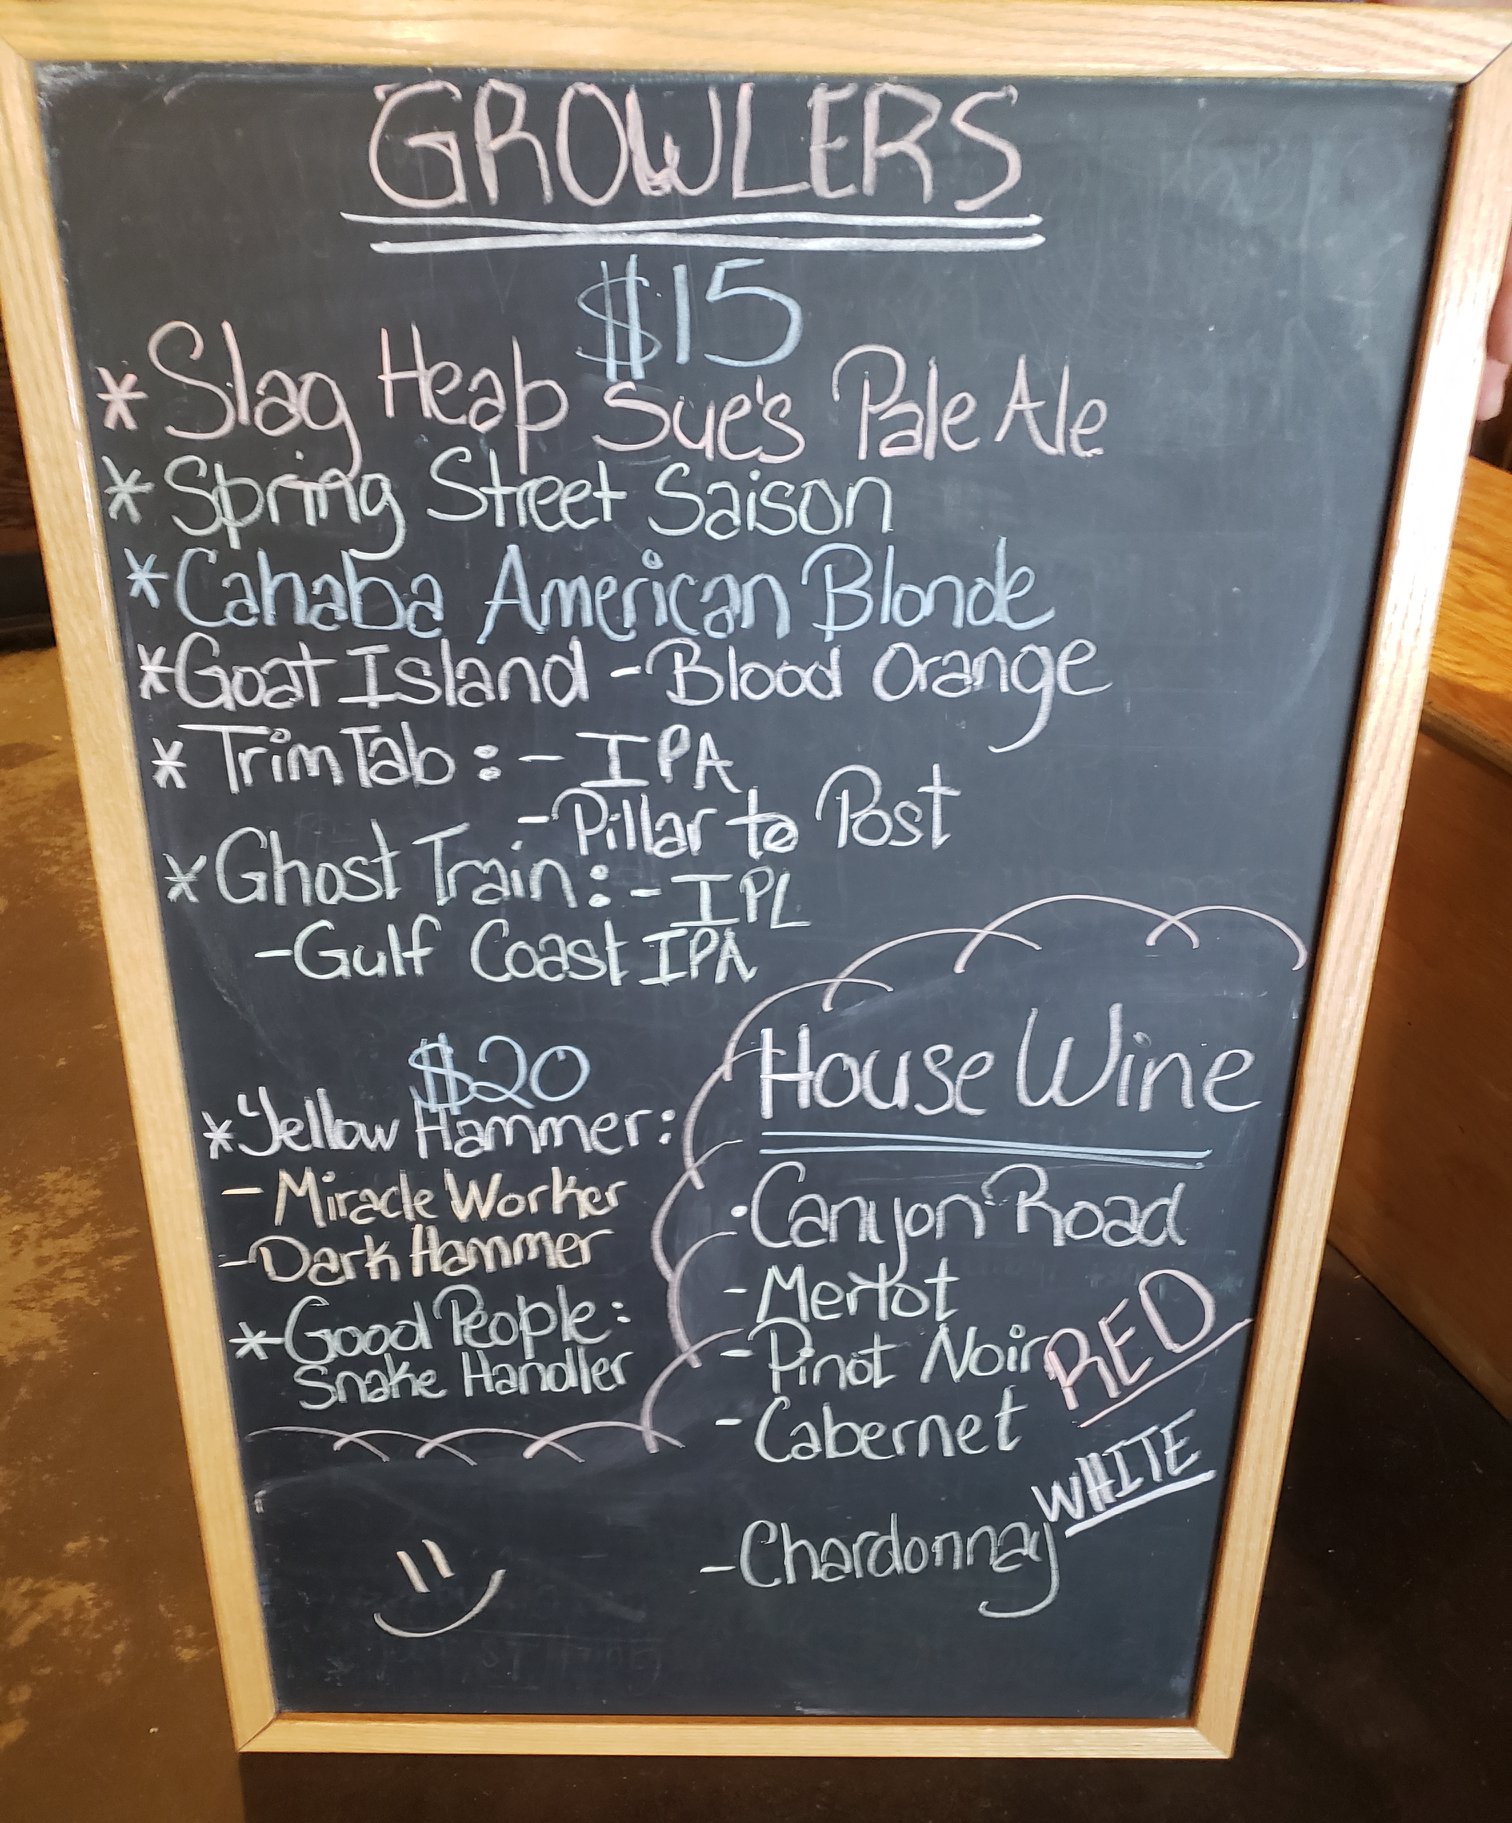 GROWLERS
$15
* Slag Heap Sue's Pale Ale
* Spring Street Saison
* Cahaba American Blonde
* Goat Island - Blood Orange
* TrimTab : - IPA
- Pillar to Post
* Ghost Train : - IPL
- Gulf Coast IPA
$20
* Yellow Hammer :
- Miracle Worker
- Dark Hammer
* Good People :
Snake Handler
House Wine
· Canyon Road
- Merlot
- Pinot Noir
RED
- Cabernet
WHITE
- Chardonnay